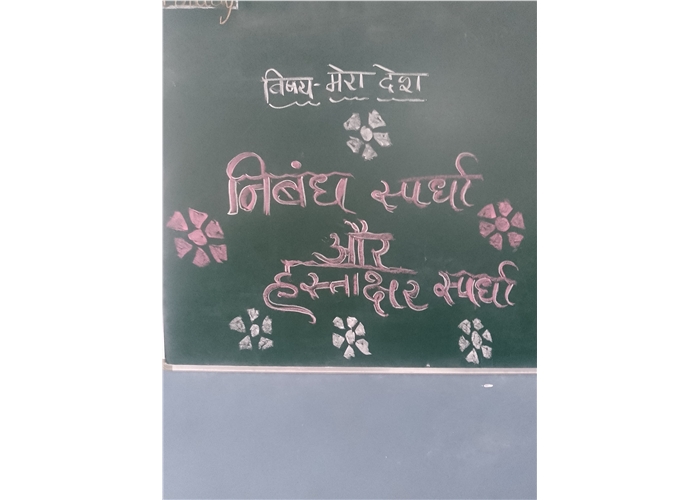 विषय - मेरा देश
निबंध स्पर्धा
और
हस्ताक्षर स्पर्धा